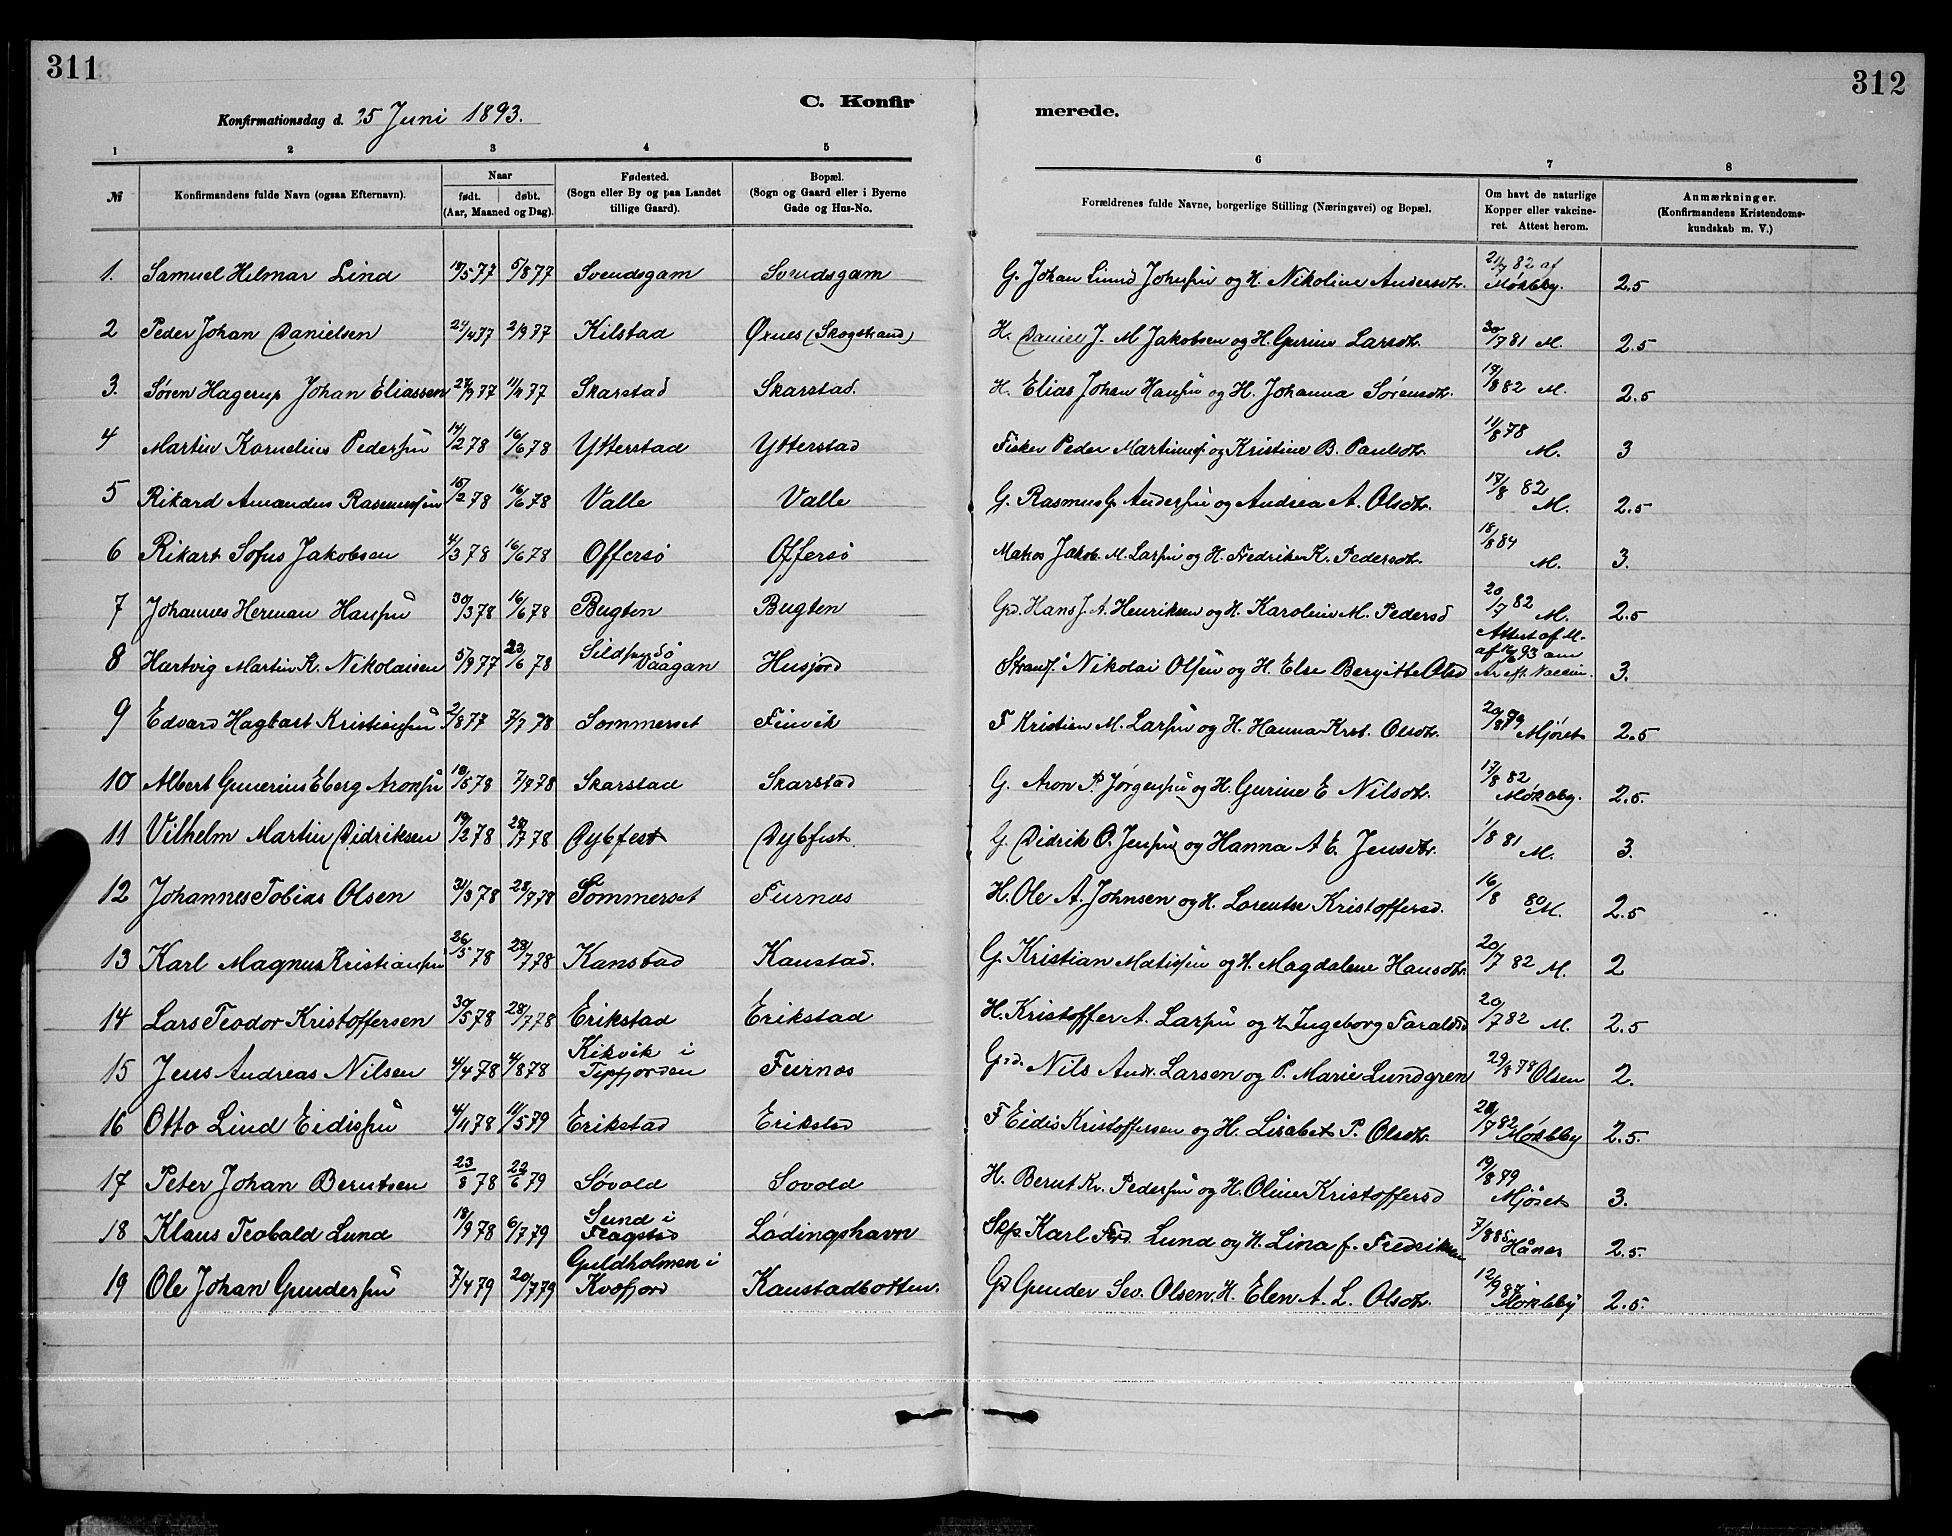 311
312
C. Konfir
merede.
Konfirmationsdag d. 25 Juni 1893.
1 2 3 4 5 6 7 8
№ Konfirmandens fulde Navn (ogsaa Efternavn). Naar født. døbt. (Aar, Maaned og Dag). Fødested. (Sogn eller By og paa Landet tillige Gaard). Bopæl. (Sogn og Gaard eller i Byerne Gade og Hus-No. Forældrenes fulde Navne, borgerlige Stilling (Næringsvei) og Bopæl. Om havt de naturlige Kopper eller vakcineret. Attest herom. Anmærkninger. (Konfirmandens Kristendomskundskab m. V.)
1. Samuel Hilmar Lind 19/5 77 5/8 77 Svendsgam Svendsgam G. Johan Lund Johnsen og H. Nikoline Andersdtr. 21/7 82 af Møkleby. 2.5
2 Peder Johan Danielsen 24/4 77 2/9 77 Kilstad Øxnes (Skogstrand) H. Daniel J. M Jakobsen og H. Gurine Larsdtr. 30/7 81 M. 2.5
3. Søren Hagerup Johan Eliassen 27/9 77 11/11 77 Skarstad Skarstad. H. Elias Johan Hansen og H. Johanna Sørensdtr. 19/8 82 M. 2.5
4 Martin Kornelius Pedersen 14/2 78 16/6 78 Ytterstad Ytterstad Fisker Peder Martinus. og Kristine B. Paulsdtr. 11/8 78 M. 3
5 Rikard Amandus Rasmussen 15/2 78 16/6 78 Valle Valle G. Rasmus G. Andersen og Andrea A. Olsdtr. 17/8 82 M. 2.5
6 Rikart Sofus Jakobsen 4/3 78 16/6 78 Offersø Offersø Matros Jakob M. Larsen og H. Fredrika K. Pedersdtr. 18/8 84 M. 3.
7 Johannes Herman Hansen 30/3 78 16/6 78 Bugten Bugten Gd. Hans J. A. Henriksen og H. Karoline M. Pedersd 20/7 82 M. 2.5
8 Hartvig Martin K. Nikolaisen 5/9 77 23/6 78 Vaagan Husjord Strands. Nikolai Olsen og H. Else Bergitte Olsd Attest af M. af 16/6 93 3.
9 Edvard Hagbart Kristiansen 2/8 77 7/7 78 Sommerset Finvik F Kristian M. Larsen og H. Hanna Krst. Olsdtr. 20/8 79 Mjøset 2.5
10 Albert Gunerius Eberg Aronsen 10/5 78 7/7 78 Skarstad Skarstad G. Aron P. Jørgensen og H. Gurine E Nilsdtr. 17/8 82 Møkleby. 2.5.
11 Vilhelm Martin Didriksen 19/2 78 28/7 78 Dybfest Dybfest. G. Didrik O. Jensen og Hanna A E. Jensdtr. 1/8 81 M. 3.
12 Johannes Tobias Olsen 31/3 78 28/7 78 Sommerset Furnes H. Ole A. Johnsen og H. Lorentse Kristoffersd. 16/8 80 M. 2.5
13 Karl Magnus Kristiansen 26/5 78 28/7 78 Kanstad Kanstad. G. Kristian Matisen og H. Magdalene Hansdtr. 20/7 82 M. 2
14 Lars Teodor Kristoffersen 30/5 78 28/7 78 Erikstad Erikstad H. Kristoffer A. Larsen og H Ingeborg Faraldsd 20/7 82 M. 2.5
15 Jens Andreas Nilsen 4/4 78 4/8 78 Kikvik i Tepfjorden Furnes Gd. Nils Andr. Larsen og P. Marie Lundgren 29/8 78 Olsen 2.
16 Otto Lind Eidissen 4/11 78 11/5 79 Erikstad Erikstad F Eidis Kristoffersen og H. Lisabet P. Olsdtr. 20/7 82 Møkleby 2.5.
17 Peter Johan Berntsen 23/8 78 22/6 79 Søvold Sovold H. Bernt Kr. Pedersen og H. Oline Kristoffersd 19/8 79 Mjøset 3.
18 Klaus Teobald Lund 18/9 78 6/7 79 Sund i Flagstad Lødingshavn Skp. Karl Ferd. Lund og H. Lina f. Fredriksen 7/8 85 Håner 2.5.
19 Ole Johan Gundersen 7/4 79 20/7 79 Guldholmen i Kvæfjord Kanstadbotten. Gd Gunder Sev. Olsen. H. Elen A. L. Olsdtr. 12/9 87 Møkleby 2.5.